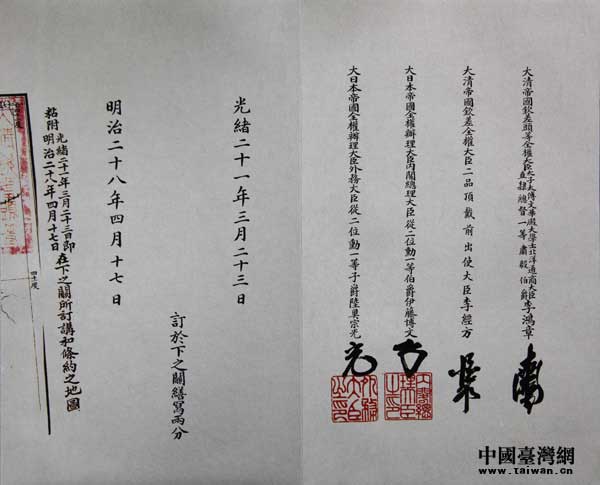 大清帝國欽差頭等全權大臣太子太傅文華殿大學士北洋通商大臣直隸總督一等肅毅伯爵李鴻章
大清帝國欽差全權大臣二品頂戴前出使大臣李經方
大日本帝國全權辦理大臣內閣總理大臣從二位勳一等伯爵伊藤博文
大日本帝國全權辦理大臣外務大臣從二位勳一等子爵陸奧宗光
訂於下之關繕寫兩分
光緒二十一年三月二十三日
明治二十八年四月十七日
粘附光緒二十一年三月二十三日即明治二十八年四月十七日在下之關所訂講和條約之地圖
中國臺灣網
www.taiwan.cn